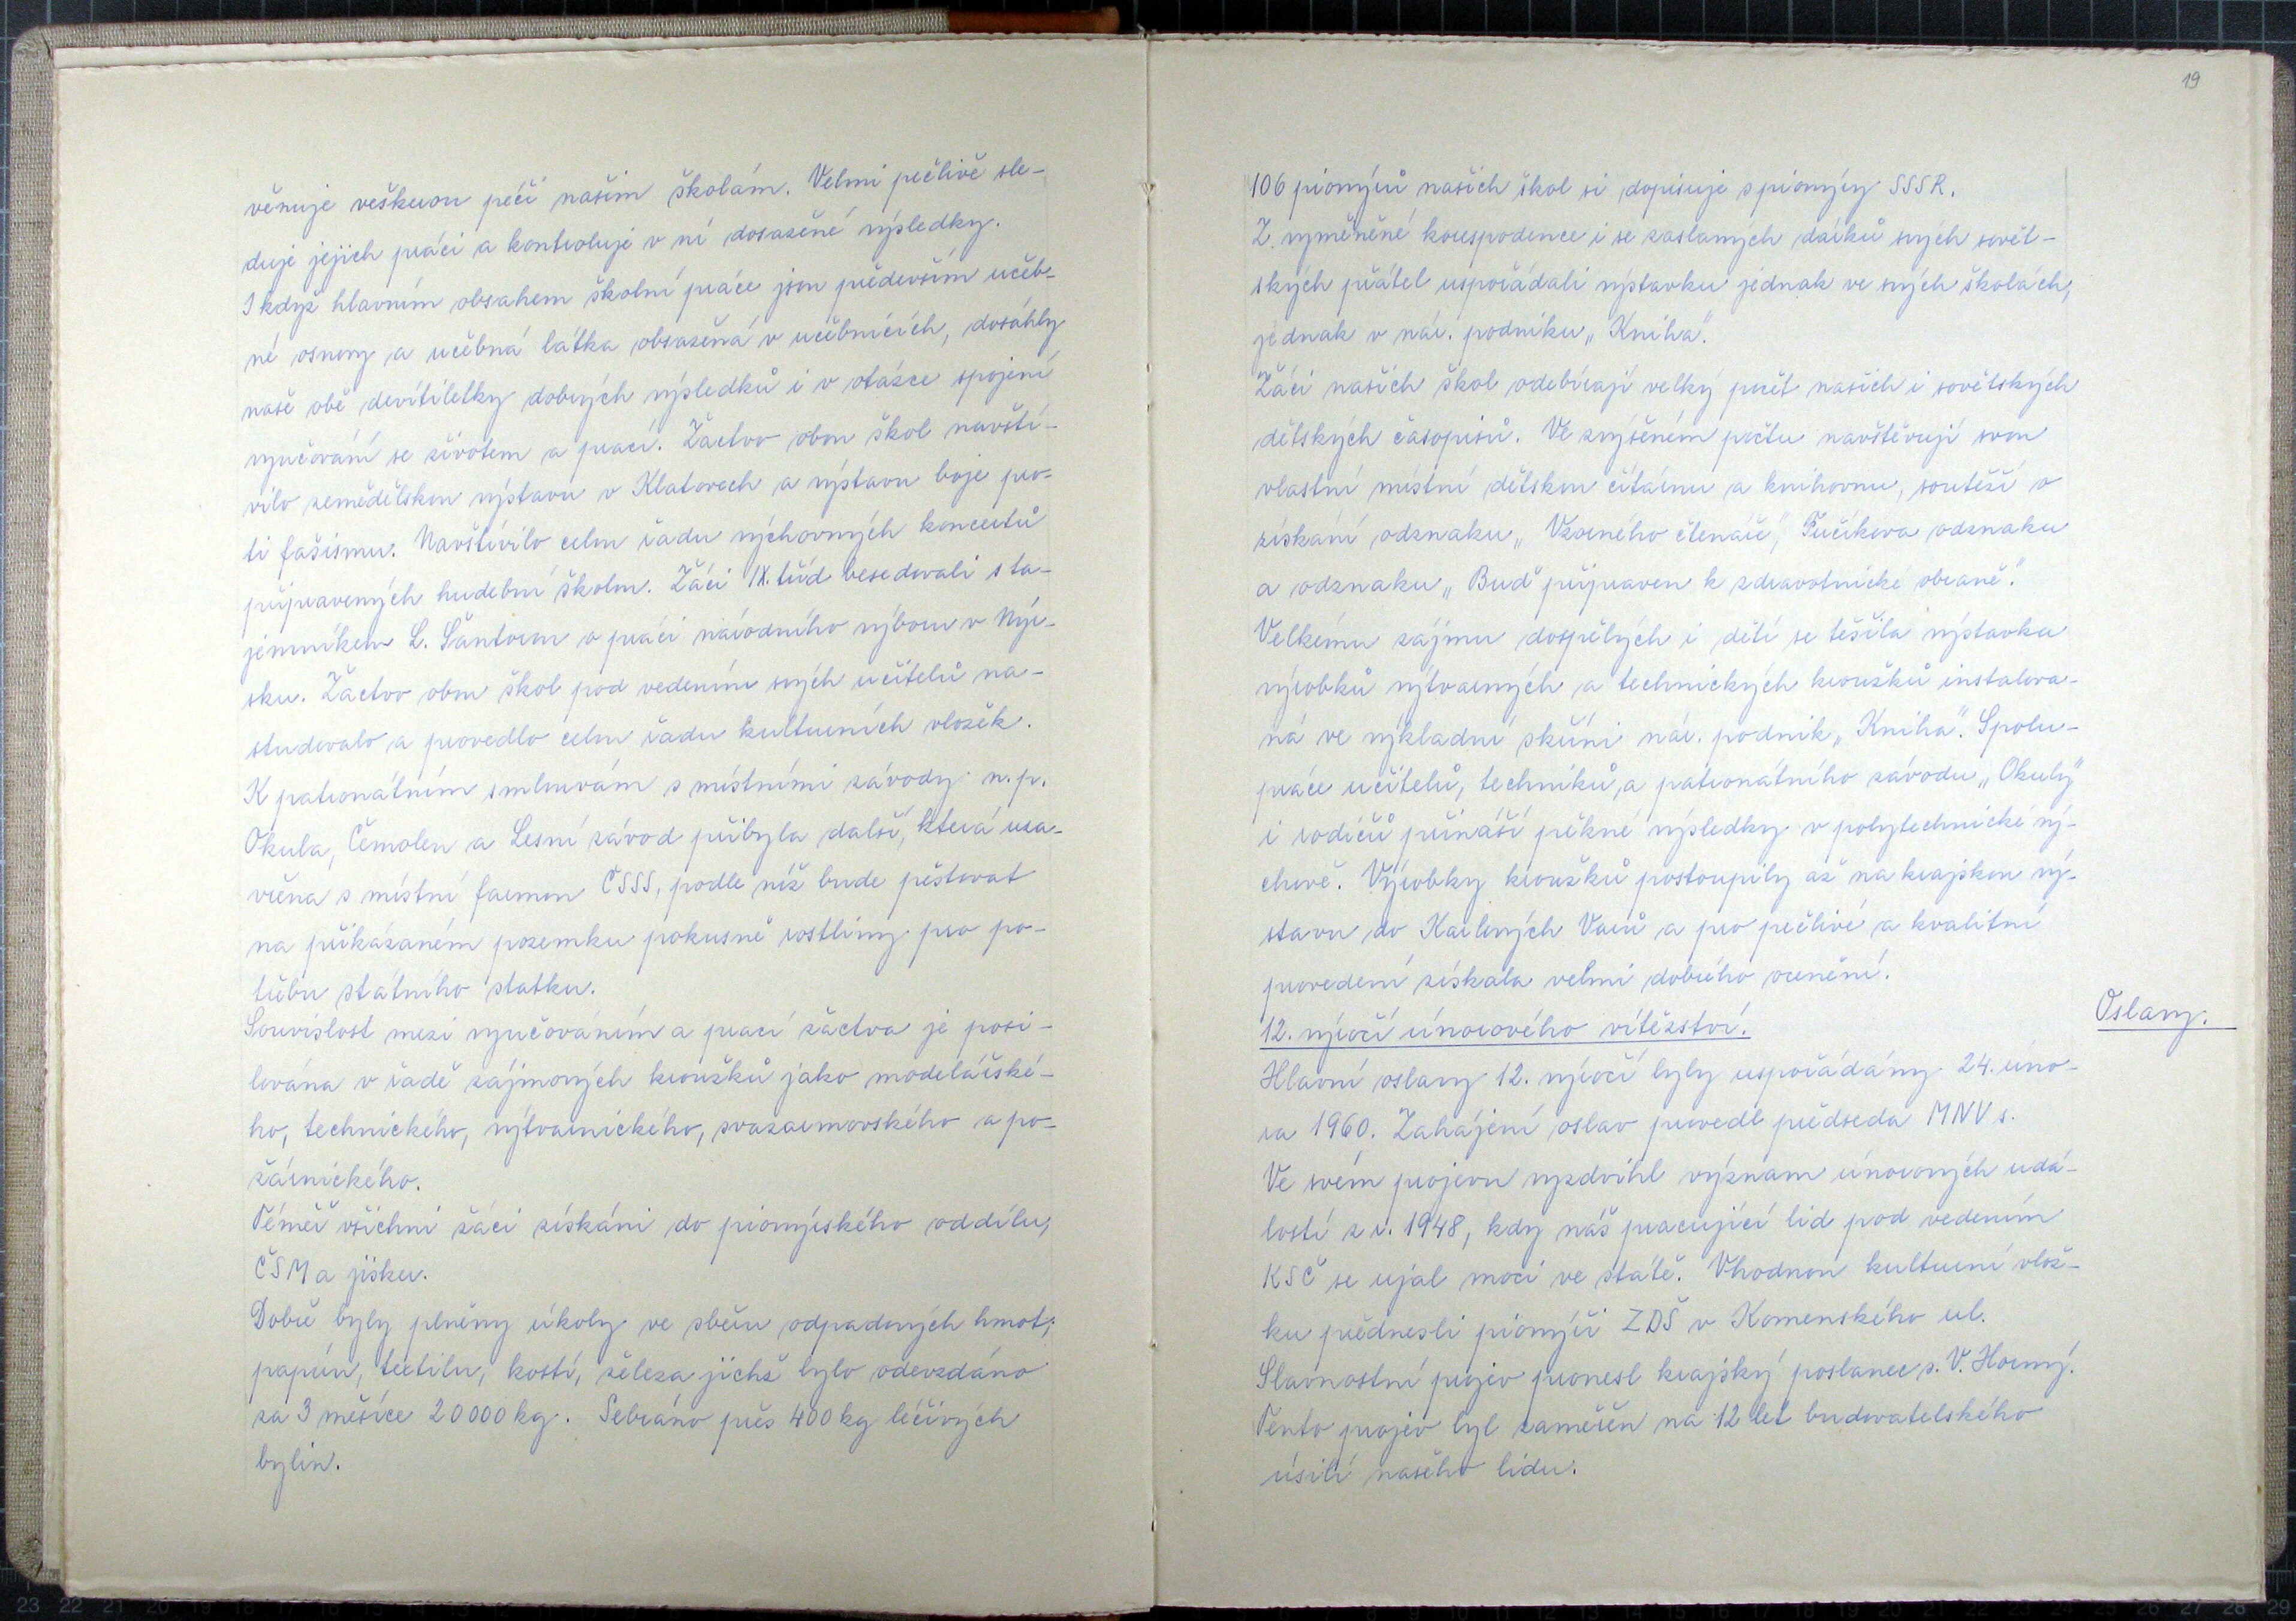 věnuje veškerou péči našim školám. Velmi pečlivě sle-
duje jejich práci a kontroluje v ní dosažené výsledky.
I když hlavním obsahem školní práce jsou především učeb-
né osnovy a učebná látka obsažená v učebnicích, dosáhly
naše obě devítiletky dobrých výsledků i v otázce spojení
vyučování se životem a prací. Žactvo obou škol navští-
vilo zemědělskou výstavu v Klatovech a výstavu boje pro-
ti fašismu. Navštívilo celou řadu výchovných koncertů
připravených hudební školou. Žáci IX. tříd besedovali s ta-
jemníkem L. Šantorem o práci národního výboru v Nýr-
sku. Žactvo obou škol pod vedením svých učitelů na-
studovalo a provedlo celou řadu kulturních vložek.
K patronátním smlouvám s místními závody n. p.
Okula, Čemolen a Lesní závod přibyla další, která uza-
vřena s místní farmou ČSSS, podle níž bude pěstovat
na přikázaném pozemku pokusné rostliny pro po-
třebu státního statku.
Souvislost mezi vyučováním a prací žactva je posi-
lována v řadě zájmových kroužků jako modelářské-
ho, technického, výtvarnického, svazarmovského a po-
žárnického.
Téměř všichni žáci získáni do pionýrského oddílu,
ČSM a jisker.
Dobře byly plněny úkoly ve sběru odpadových hmot;
papíru, textilu, kostí, železa jichž bylo odevzdáno
za 3 měsíce 20000 kg. Sebráno přes 400 kg léčivých
bylin.
19
106 pionýrů našich škol si dopisuje s pionýry SSSR.
Z vyměněné korespodence i se zaslaných dárků svých sovět-
ských přátel uspořádali výstavku jednak ve svých školách,
jednak v nár. podniku „Kniha".
Žáci našich škol odebírají velký počet našich i sovětských
dětských časopisů. Ve zvýšeném počtu navštěvují svou
vlastní místní dětskou čítárnu a knihovnu, soutěží o
získání odznaku „Vzorného čtenáře", Fučíkova odznaku
a odznaku „Buď připraven k zdravotnické obraně."
Velkému zájmu dospělých i dětí se těšila výstavka
výrobků výtvarných a technických kroužků instalova-
ná ve výkladní skříni nár. podnik „Kniha". Spolu-
práce učitelů, techniků, a patronátního závodu „Okuly"
i rodičů přináší pěkné výsledky v polytechnické vý-
chově. Výrobky kroužků postoupily až na krajskou vý-
stavu do Karlových Varů a pro pečlivé a kvalitní
provedení získala velmi dobrého ocenění.
Oslavy.
12. výročí únorového vítězství.
Hlavní oslavy 12. výročí byly uspořádány 24. úno-
ra 1960. Zahájení oslav provedl předseda MNV s.
Ve svém projevu vyzdvihl význam únorových udá-
lostí z r. 1948, kdy náš pracující lid pod vedením
KSČ se ujal moci ve státě. Vhodnou kulturní vlož-
ku přednesli pionýři ZDŠ v Komenského ul.
Slavnostní projev pronesl krajský poslanec s. V. Horný.
Tento projev byl zaměřen na 12 let budovatelského
úsilí našeho lidu.